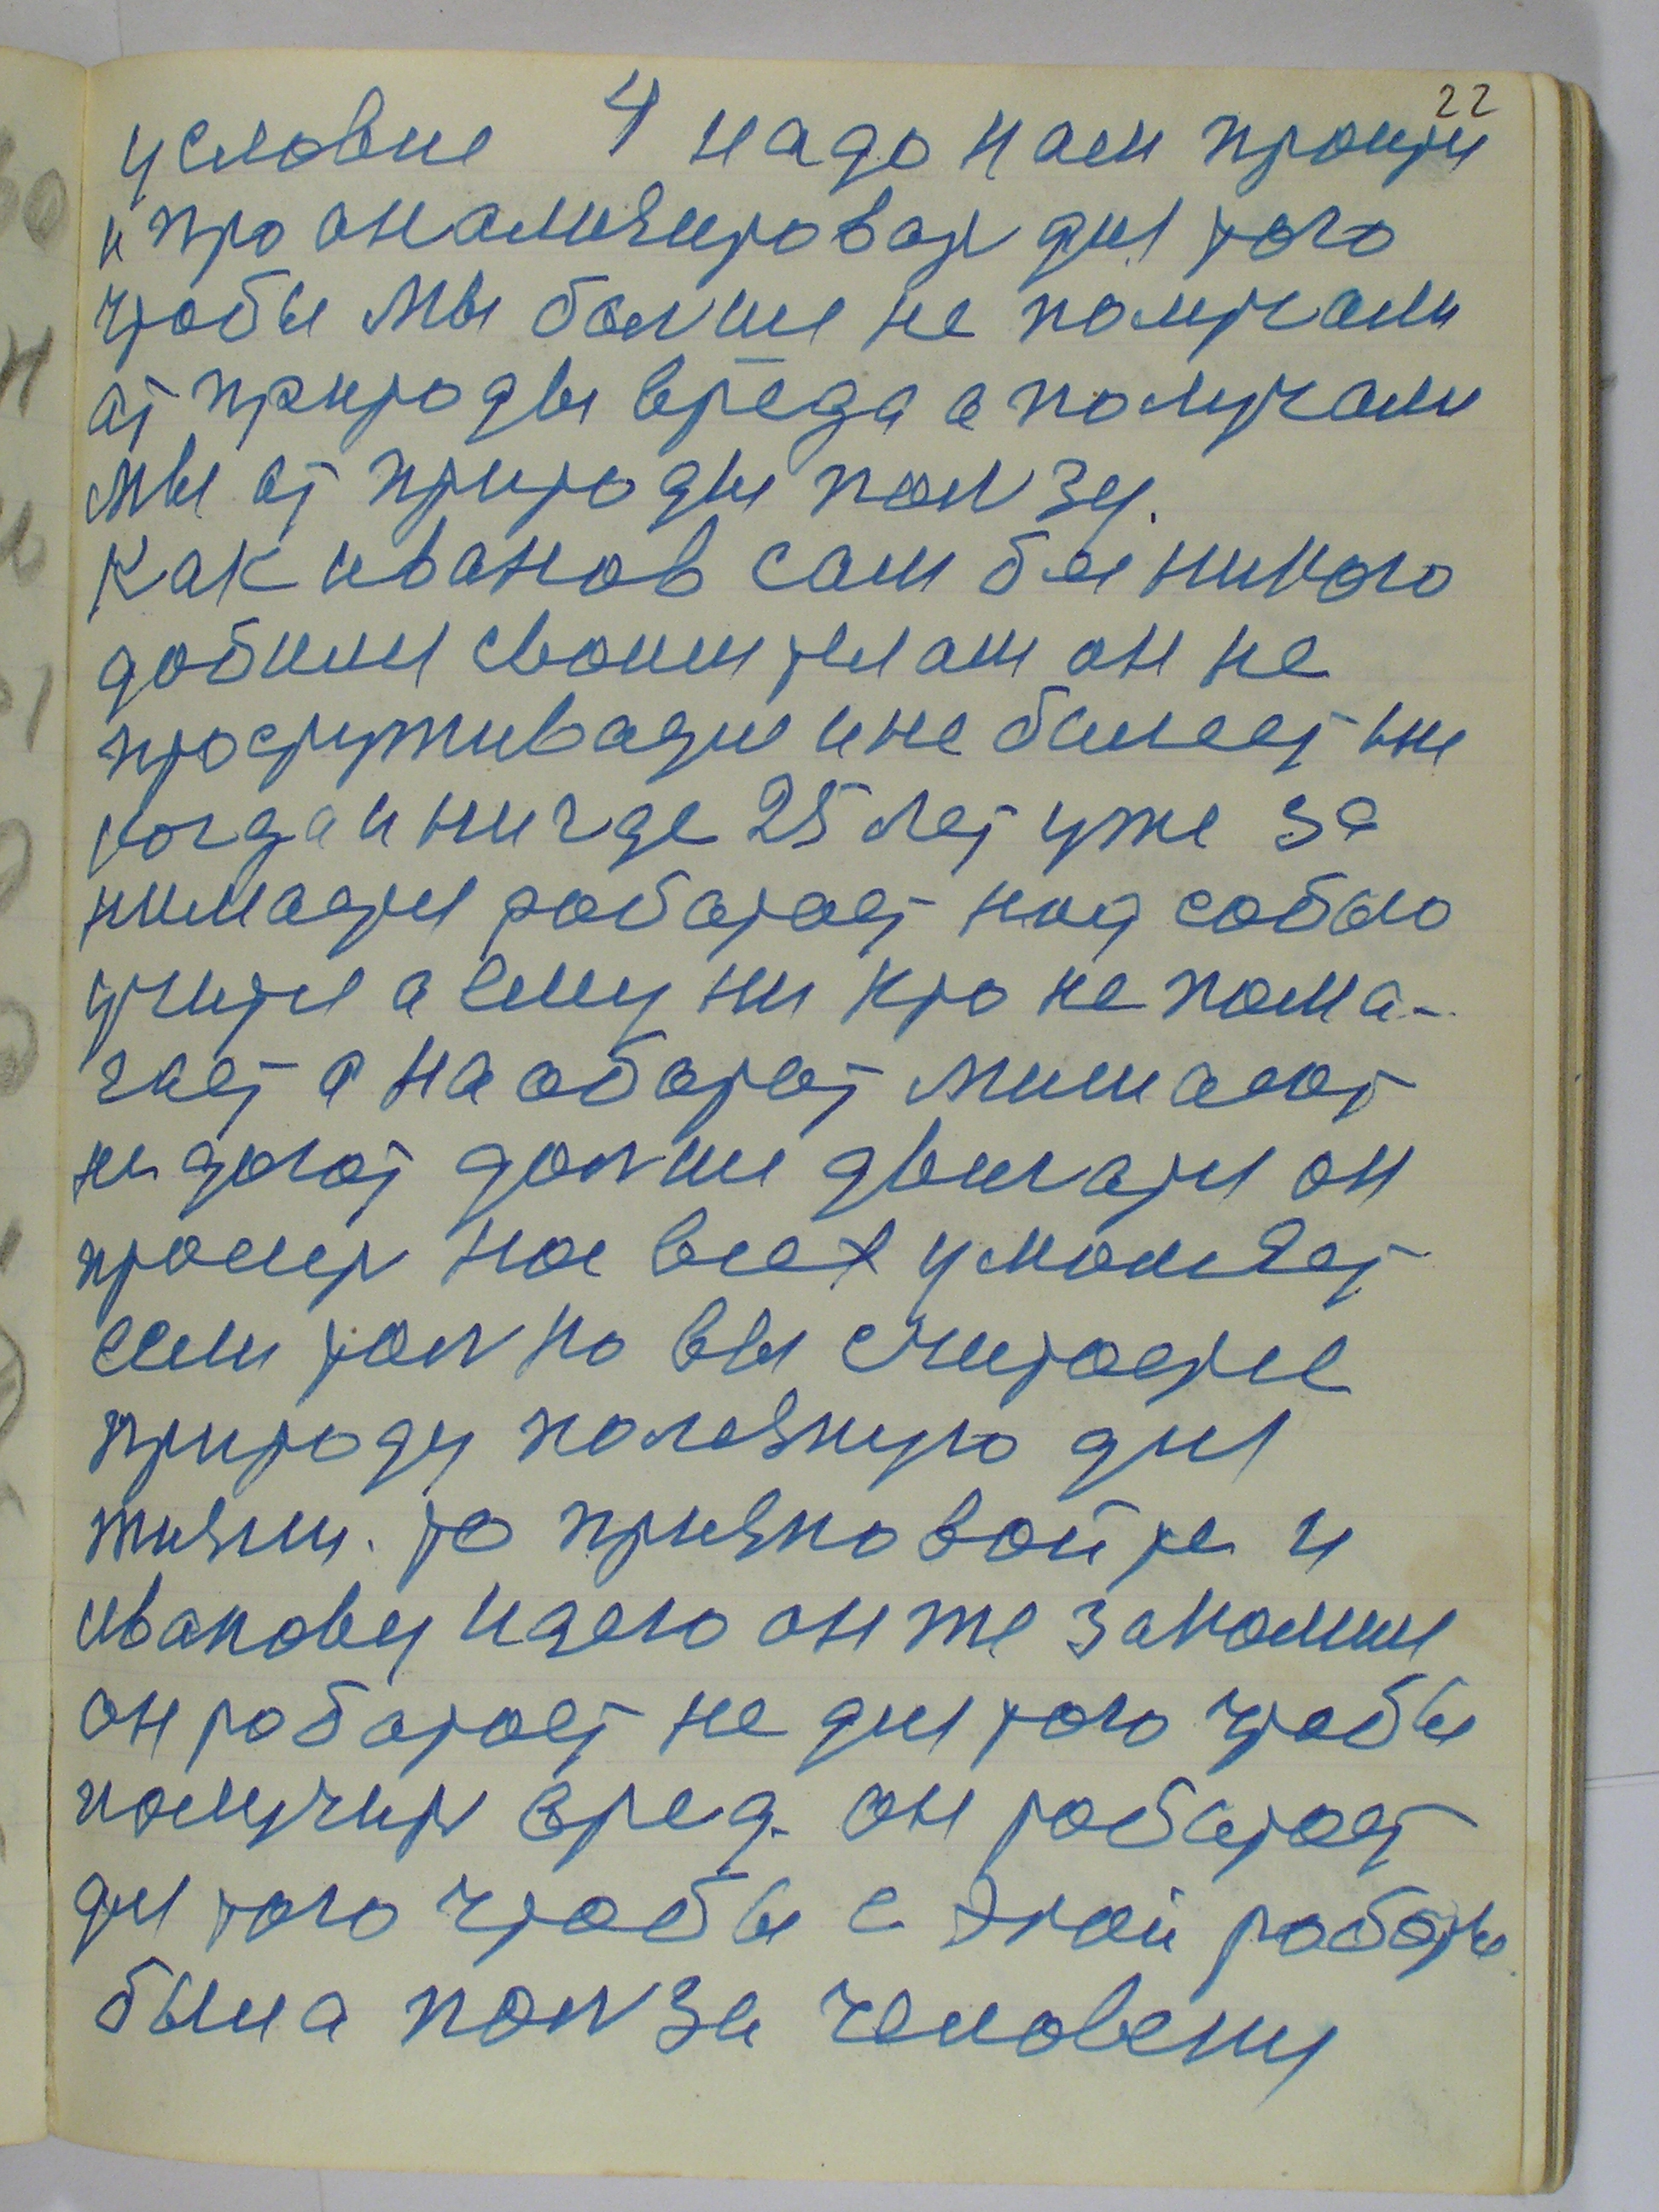 22
условие 4 надо нам пройти
и проанализировать для того
чтобы мы болше не получали
от природы вреда а получали
мы от природы ползу.
Как иванов сам бы никого
добился своим телам он не
простуживаится и не балеет ни
когда и ни где 25 лет уже за
нимается работает над собою
учится а ему ни кто не пома-
гает а наобарот мишают
не дают долше двигатся он
просит нас всех умоляет
если толко вы считаете
природу полезную для
жизни. то признавайте и
иванову идею он же закалился
он работает не для того чтобы
получить вред. он работает
для того чтобы с этой работы
была ползы человеку